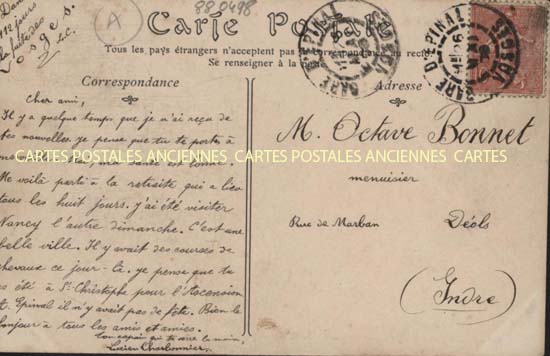 Dans
112 jours
la fuite des
Vosges
L.C.
A
88 0498
Carte Postale
Tous les pays étrangers n'acceptent pas la correspondance au recto.
Se renseigner à la poste
Correspondance
Adresse
GARE D'EPINAL
VOSGES
GARE D'EPINAL
VOSGES
Cher ami,
Il y a quelque temps que je n'ai reçu de
tes nouvelles je pense que tu te portes à
CARTES POSTALES ANCIENNES CARTES POSTALES ANCIENNES CARTES
Me voilà parti à la retraite qui a lieu
tous les huit jours. j'ai été visiter
Nancy l'autre dimanche. C'est une
belle ville. Il y avait des courses de
chevaux ce jour-là. je pense que tu
as été à St-Christophe pour l'Ascension
Epinal il n'y avait pas de fête. Bien le
bonjour à tous les amis et amies.
Ton copain qui te serre la main,
Lucien Charbonnier
M. Octave Bonnet
menuisier
Rue de Marban Déols
(Indre)